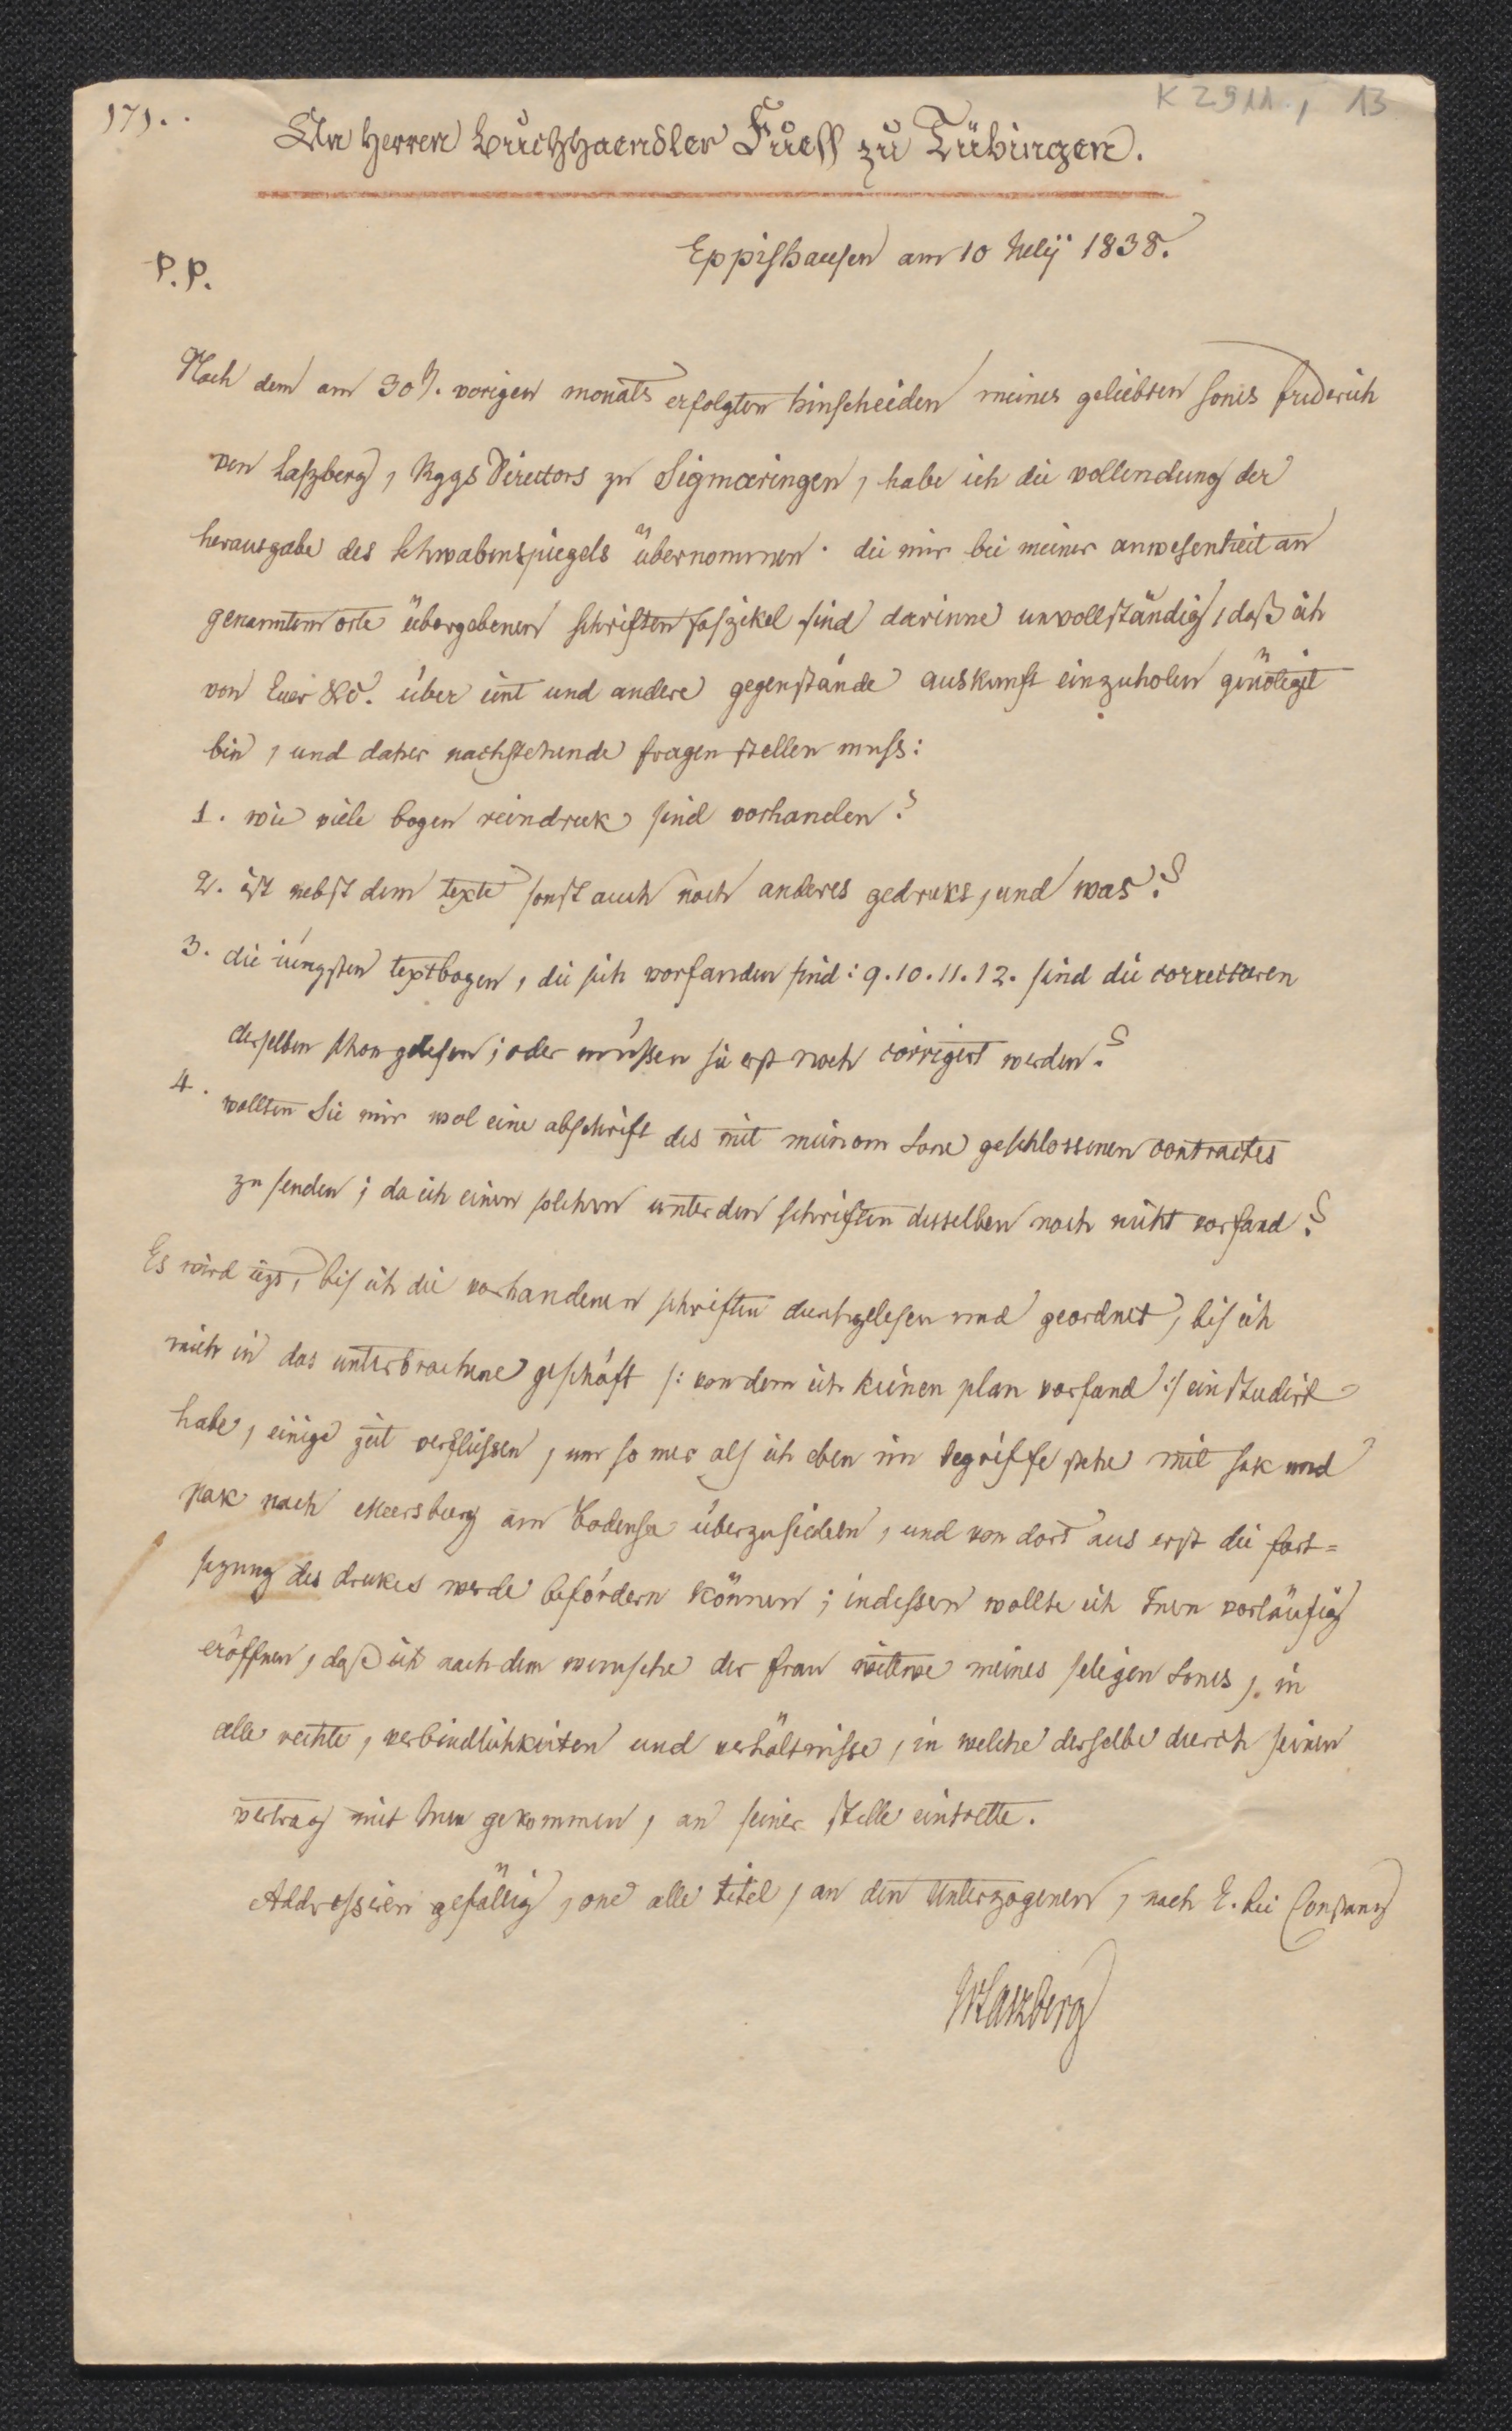 171.
K 2911., 13
An Herren Buchhaendler Fuess zu Tübingen.
Eppishausen am 10 Julij 1838.
P.P.
Nach dem am 30t. vorigen monats erfolgten hinscheiden meines geliebten sones friderich
von Laßzberg, Rggs Directors zu Sigmaringen, habe ich die vollendung der
herausgabe des schwabenspiegels übernommen. die mir bei meiner anwesenheit an
genanntem orte übergebenen schriften faszikel sind darinne unvollständig, daß ich
von Euer &c. über eint und andere gegenstände auskunft einzuholen genötiget
bin, und daher nachstehende fragen stellen muss:
1. wie viele bogen reindruk sind vorhanden?
2. ist nebst dem texte sonst auch noch anderes gedrukt, und was?
3. die iüngsten textbogen, die sich vorfanden sind: 9.10.11.12. sind die correcturen
derselben schon gelesen; oder müßen sie erst noch corrigirt werden?
4. wollten Sie mir wol eine abschrift des mit meinem Sone geschlossenen contractes
zu senden; da ich einen solchen unter den schriften desselben noch nicht vorfand?
Es wird izt, bis ich die vorhandenen schriften durchgelesen und geordnet, bis ich
mich in das unterbrochene geschäft /: von dem ich keinen plan vorfand :/ einstudirt
habe, einige zeit verfliessen, um so mer als ich eben im begriffe stehe mit sak und
pak nach Meersburg am Bodensee überzusiedeln, und von dort aus erst die fort=
sezung des drukes werde befördern können; indessen wollte ich Inen vorläufig
eröffnen, daß ich nach dem wunsche der frau wittwe meines seligen Sones, in
alle rechte, verbindlichkeiten und verhältnisse, in welche derselbe durch seinen
vertrag mit Inen gekommen, an seiner stelle eintrette.
Addressiren gefällig, one alle titel, an den Unterzogenen, nach E. bei Constanz
JvLaszberg